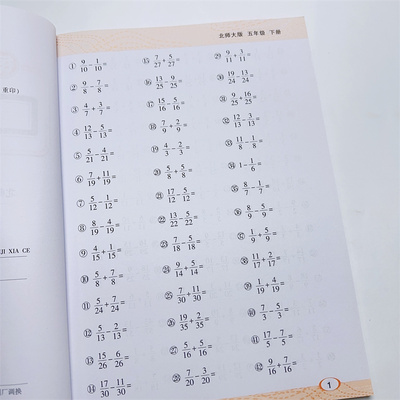 北师大版 五年级 下册
① 9/10－1/10＝
② 9/8－7/8＝
③ 4/7＋3/7＝
④ 12/13－5/13＝
⑤ 5/21－4/21＝
⑥ 7/19＋11/19＝
⑦ 5/12－1/12＝
⑧ 8/19－4/19＝
⑨ 4/15＋1/15＝
⑩ 5/8＋7/8＝
⑪ 5/24＋7/24＝
⑫ 5/13－2/13＝
⑬ 15/26－6/26＝
⑭ 17/30－11/30＝
⑮ 7/27＋5/27＝
⑯ 13/25－9/25＝
⑰ 15/16－5/16＝
⑱ 7/9＋2/9＝
⑲ 4/3－2/3＝
⑳ 5/8＋5/8＝
㉑ 17/12－5/12＝
㉒ 13/22－5/22＝
㉓ 7/18－5/18＝
㉔ 9/14＋5/14＝
㉕ 7/30＋11/30＝
㉖ 19/35＋2/35＝
㉗ 5/16＋5/16＝
㉘ 7/20－3/20＝
㉙ 9/11＋3/11＝
㉚ 19/24－13/24＝
㉛ 9/25＋16/25＝
㉜ 12/33－5/33＝
㉝ 11/8－1/8＝
㉞ 1－1/6＝
㉟ 8/7－1/7＝
㊱ 8/9－5/9＝
㊲ 1/9＋5/9＝
㊳ 11/17＋2/17＝
㊴ 8/11－4/11＝
㊵ 7/3－5/3＝
㊶ 17/7－5/7＝
㊷ 9/16＋7/16＝
1
重印）
JI XIA CE
厂调换